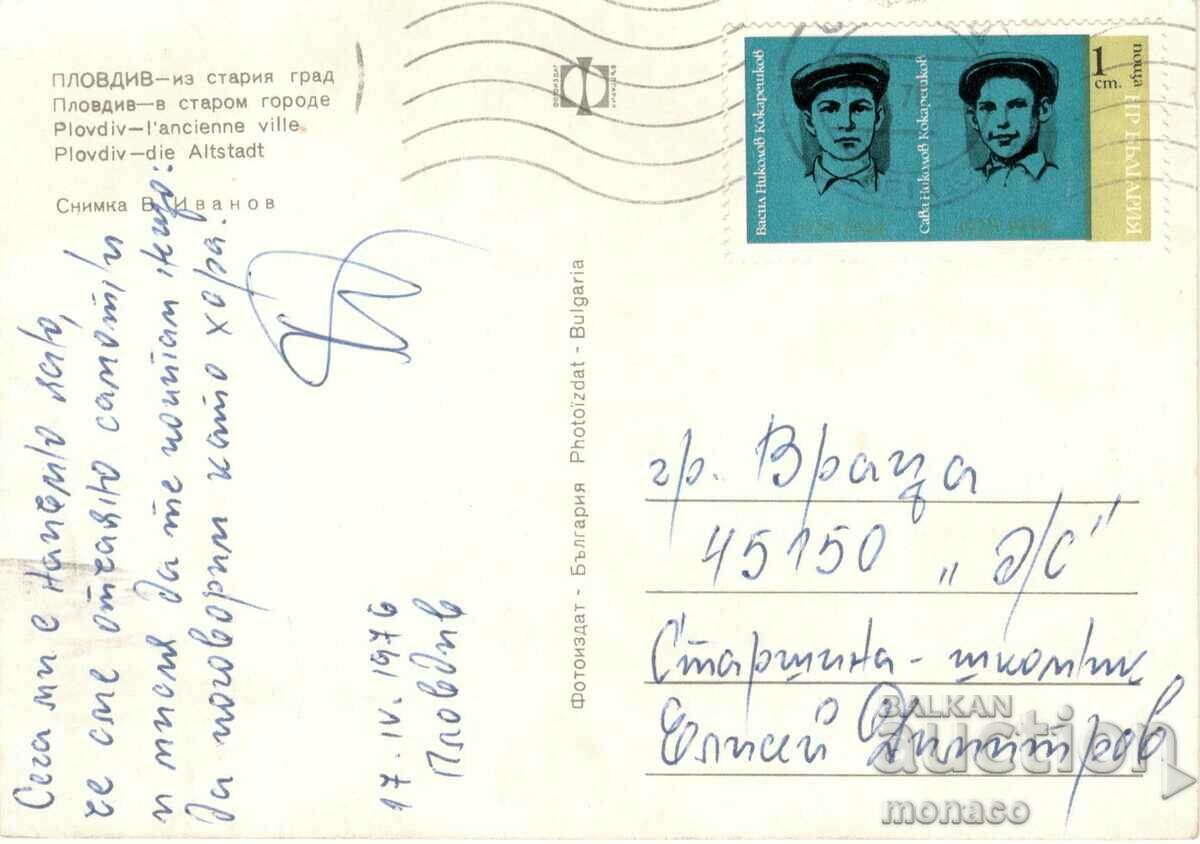 ПЛОВДИВ—из стария град
Пловдив—в старом городе
Plovdiv—l'ancienne ville
Plovdiv—die Altstadt
Снимка В. Иванов
Сега ми е
че сме
и мисля да те
да поговорим като хора.
17. IV. 1976
Пловдив
Фотоиздат - България Photoïzdat - Bulgaria
ФОТОИЗДАТ
БЪЛГАРИЯ
Васил Николов Кокарешков
Сава Николов Кокарешков
1 ст.
поща
НР БЪЛГАРИЯ
гр. Враца
45150 „Э/С"
Старшина - школник
Елисей Димитров
BALKAN
auction
monaco